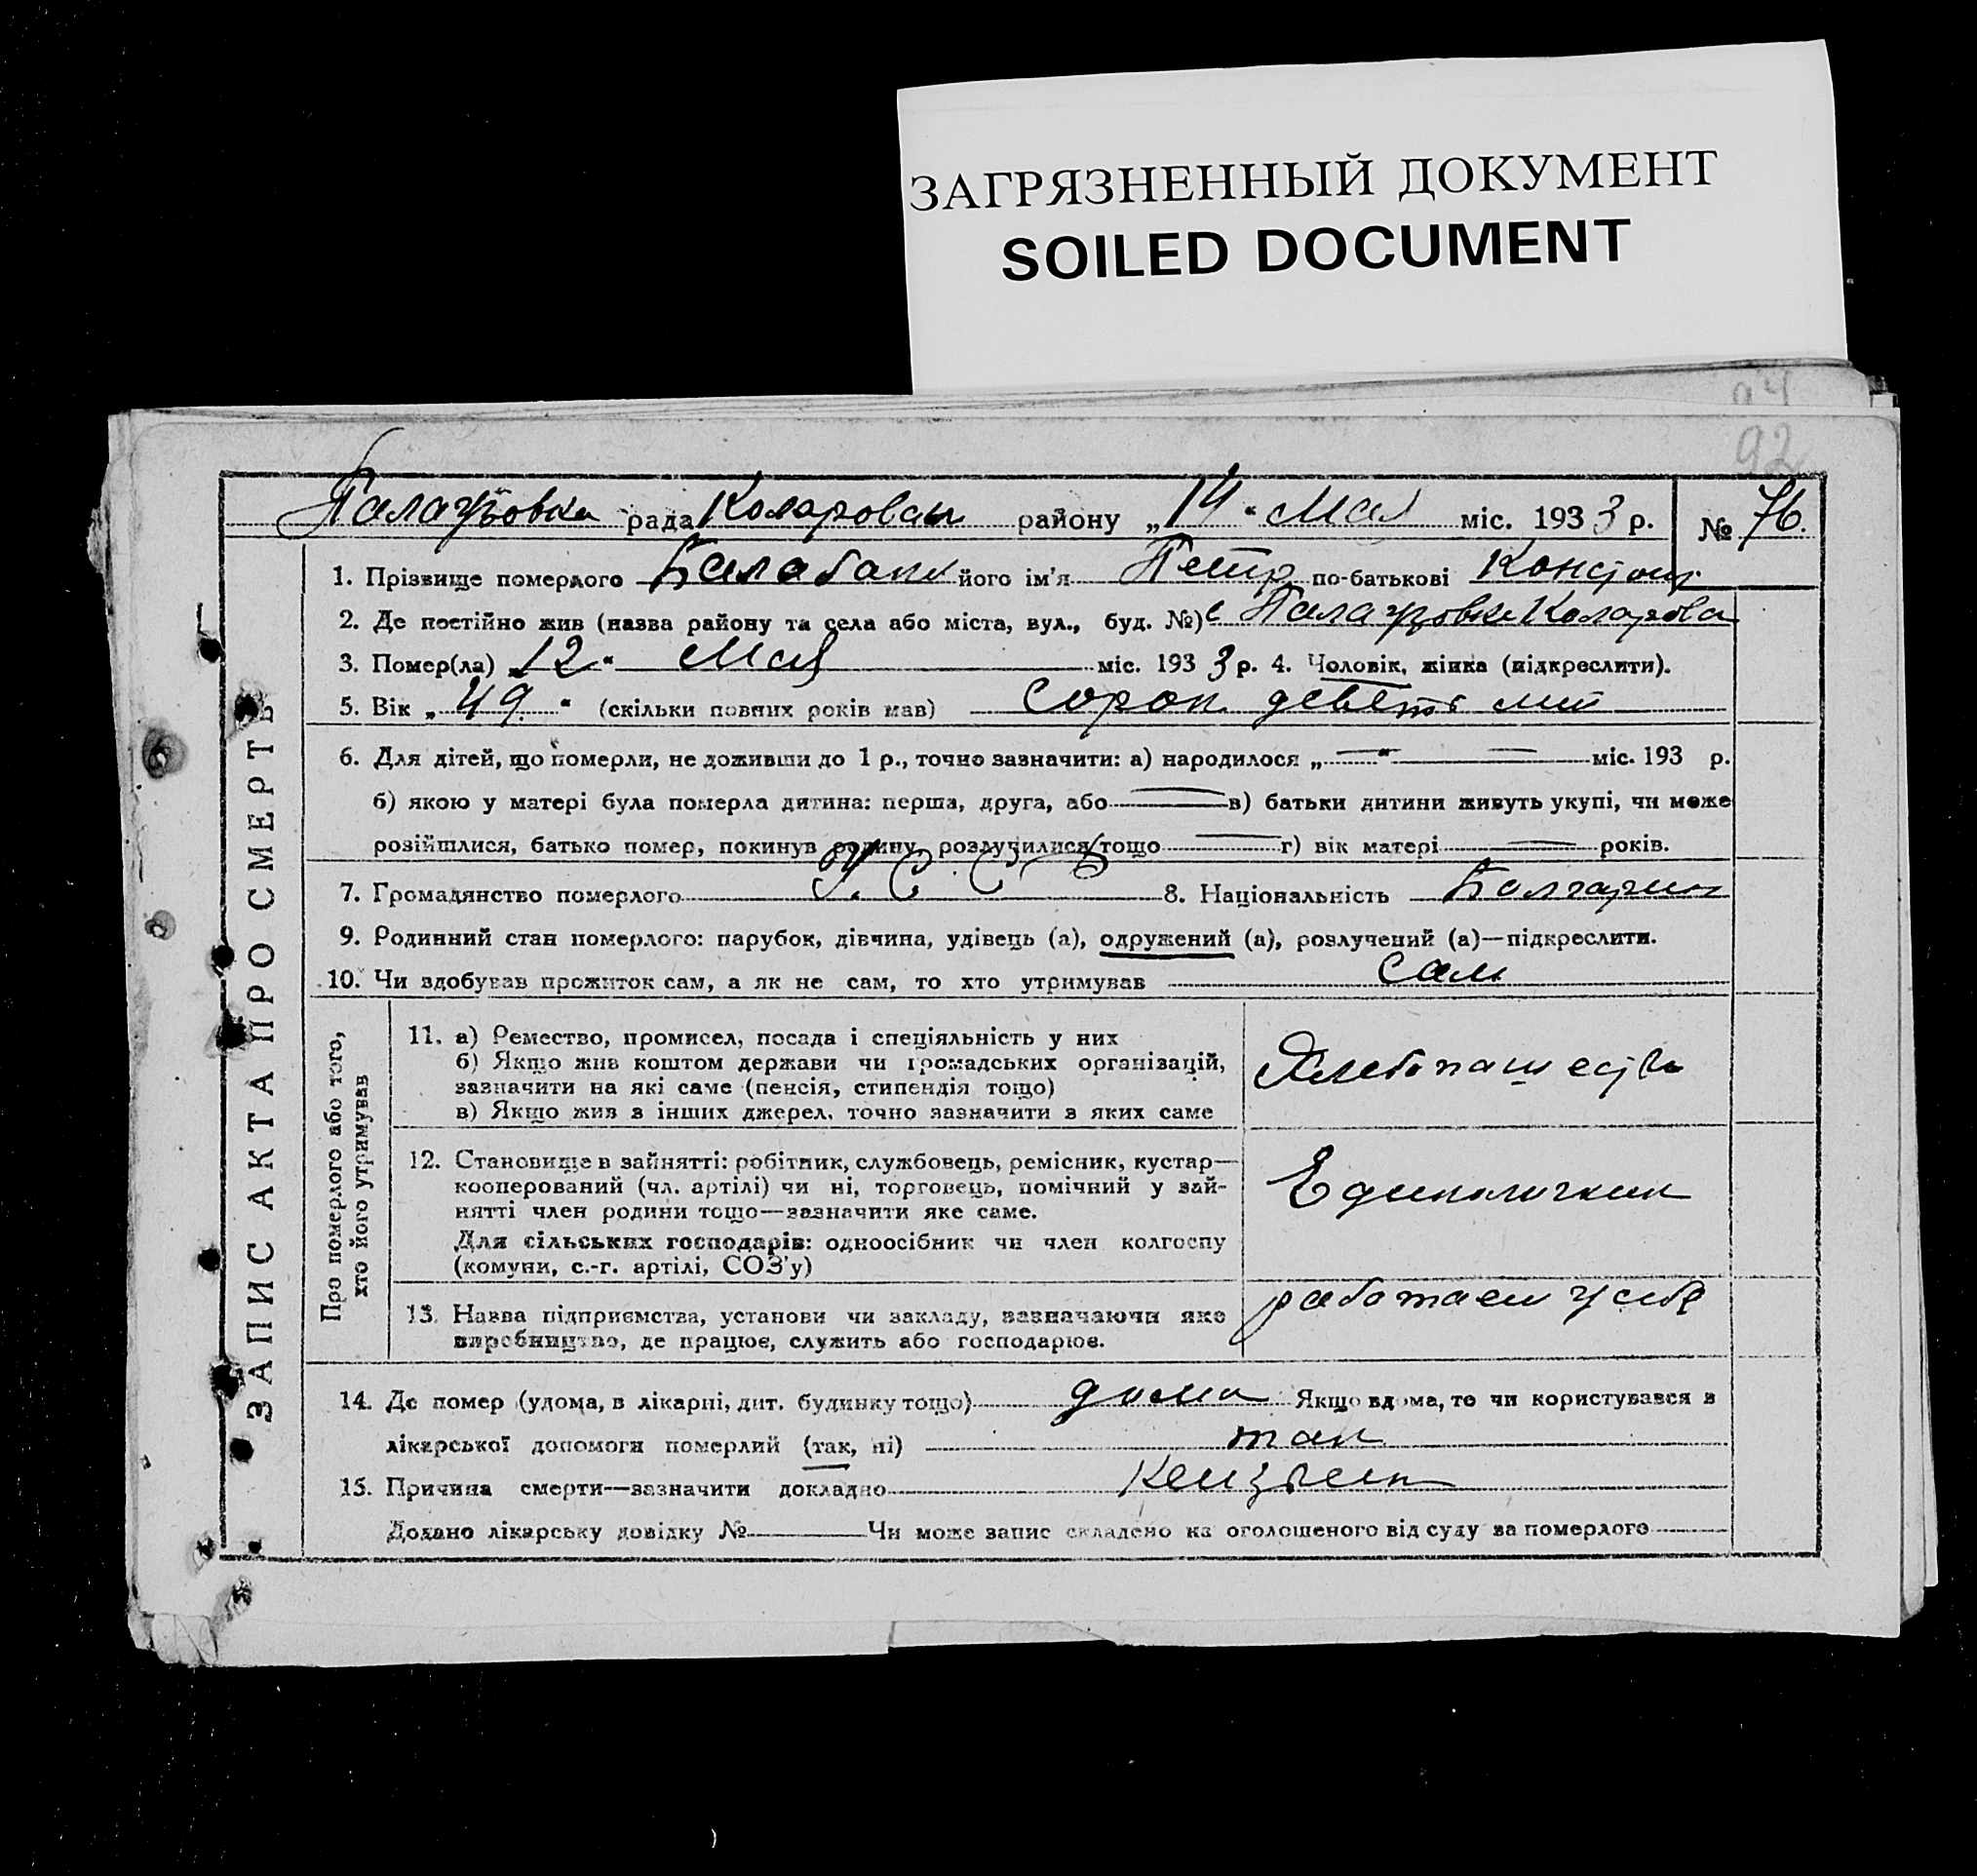 ЗАГРЯЗНЕННЫЙ ДОКУМЕНТ
SOILED DOCUMENT
92
рада района „14“ Мая міс. 1933 р. № 76.
1. Прізвище померлого Балабан його ім'я Петр по-батькові
2. Де постійно жив (назва району та села або міста, вул., буд. №) с
3. Помер(ла) „12“ Мая міс. 1933 р. 4. Чоловік, жінка (підкреслити).
5. Вік „49“ (скільки повних років мав) сорок лет
6. Для дітей, що померли, не доживши до 1 р., точно зазначити: а) народилося „—“ — міс. 193 р.
б) якою у матері була померла дитина: перша, друга, або — в) батьки дитини живуть укупі, чи може
розійшлися, батько помер, покинув родину, розлучилися тощо — г) вік матері — років.
7. Громадянство померлого У.С.С.Р 8. Національність Болгарин
9. Родинний стан померлого: парубок, дівчина, удівець (а), одружений (а), розлучений (а)—підкреслити.
10. Чи здобував прожиток сам, а як не сам, то хто утримував сам
ЗАПИС АКТА ПРО СМЕРТЬ
Про померлого або того,
хто його утримував
11. а) Ремество, промисел, посада і спеціяльність у них
б) Якщо жив коштом держави чи громадських організацій,
зазначити на які саме (пенсія, стипендія тощо)
в) Якщо жив з інших джерел, точно зазначити з яких саме
12. Становище в зайнятті: робітник, службовець, ремісник, кустар—
кооперований (чл. артілі) чи ні, торговець, помічний у зай-
нятті член родини тощо—зазначити яке саме.
Для сільських господарів: одноосібник чи член колгоспу
(комуни, с.-г. артілі, СОЗ'у)
Единоличник
13. Назва підприємства, установи чи закладу, зазначаючи яке
виробництво, де працює, служить або господарює.
работает у себе
14. Де помер (удома, в лікарні, дит. будинку тощо) дома Якщо вдома, то чи користувався з
лікарської допомоги померлий (так, ні) так
15. Причина смерти—зазначити докладно
Додано лікарську довідку № Чи може запис складено на оголошеного від суду за померлого